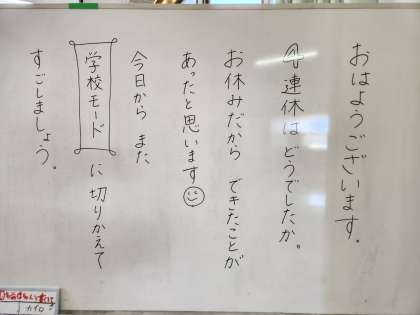 おはようございます。
④連休はどうでしたか。
お休みだから できたことが
あったと思います
今日から また
学校モード に切りかえて
すごしましょう。